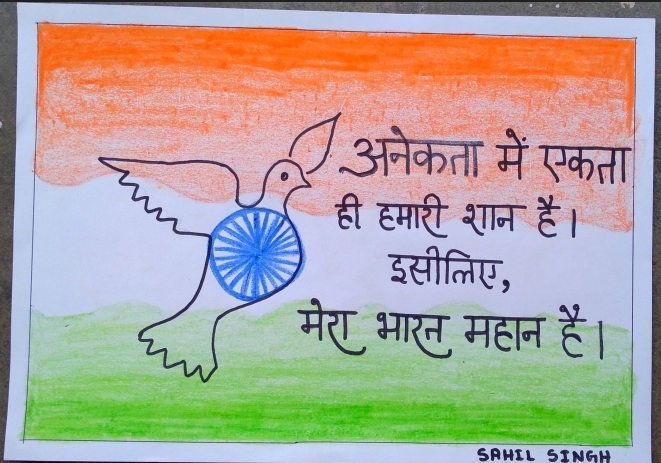 अनेकता में एकता
ही हमारी शान है।
इसीलिए,
मेरा भारत महान है।
SAHIL SINGH